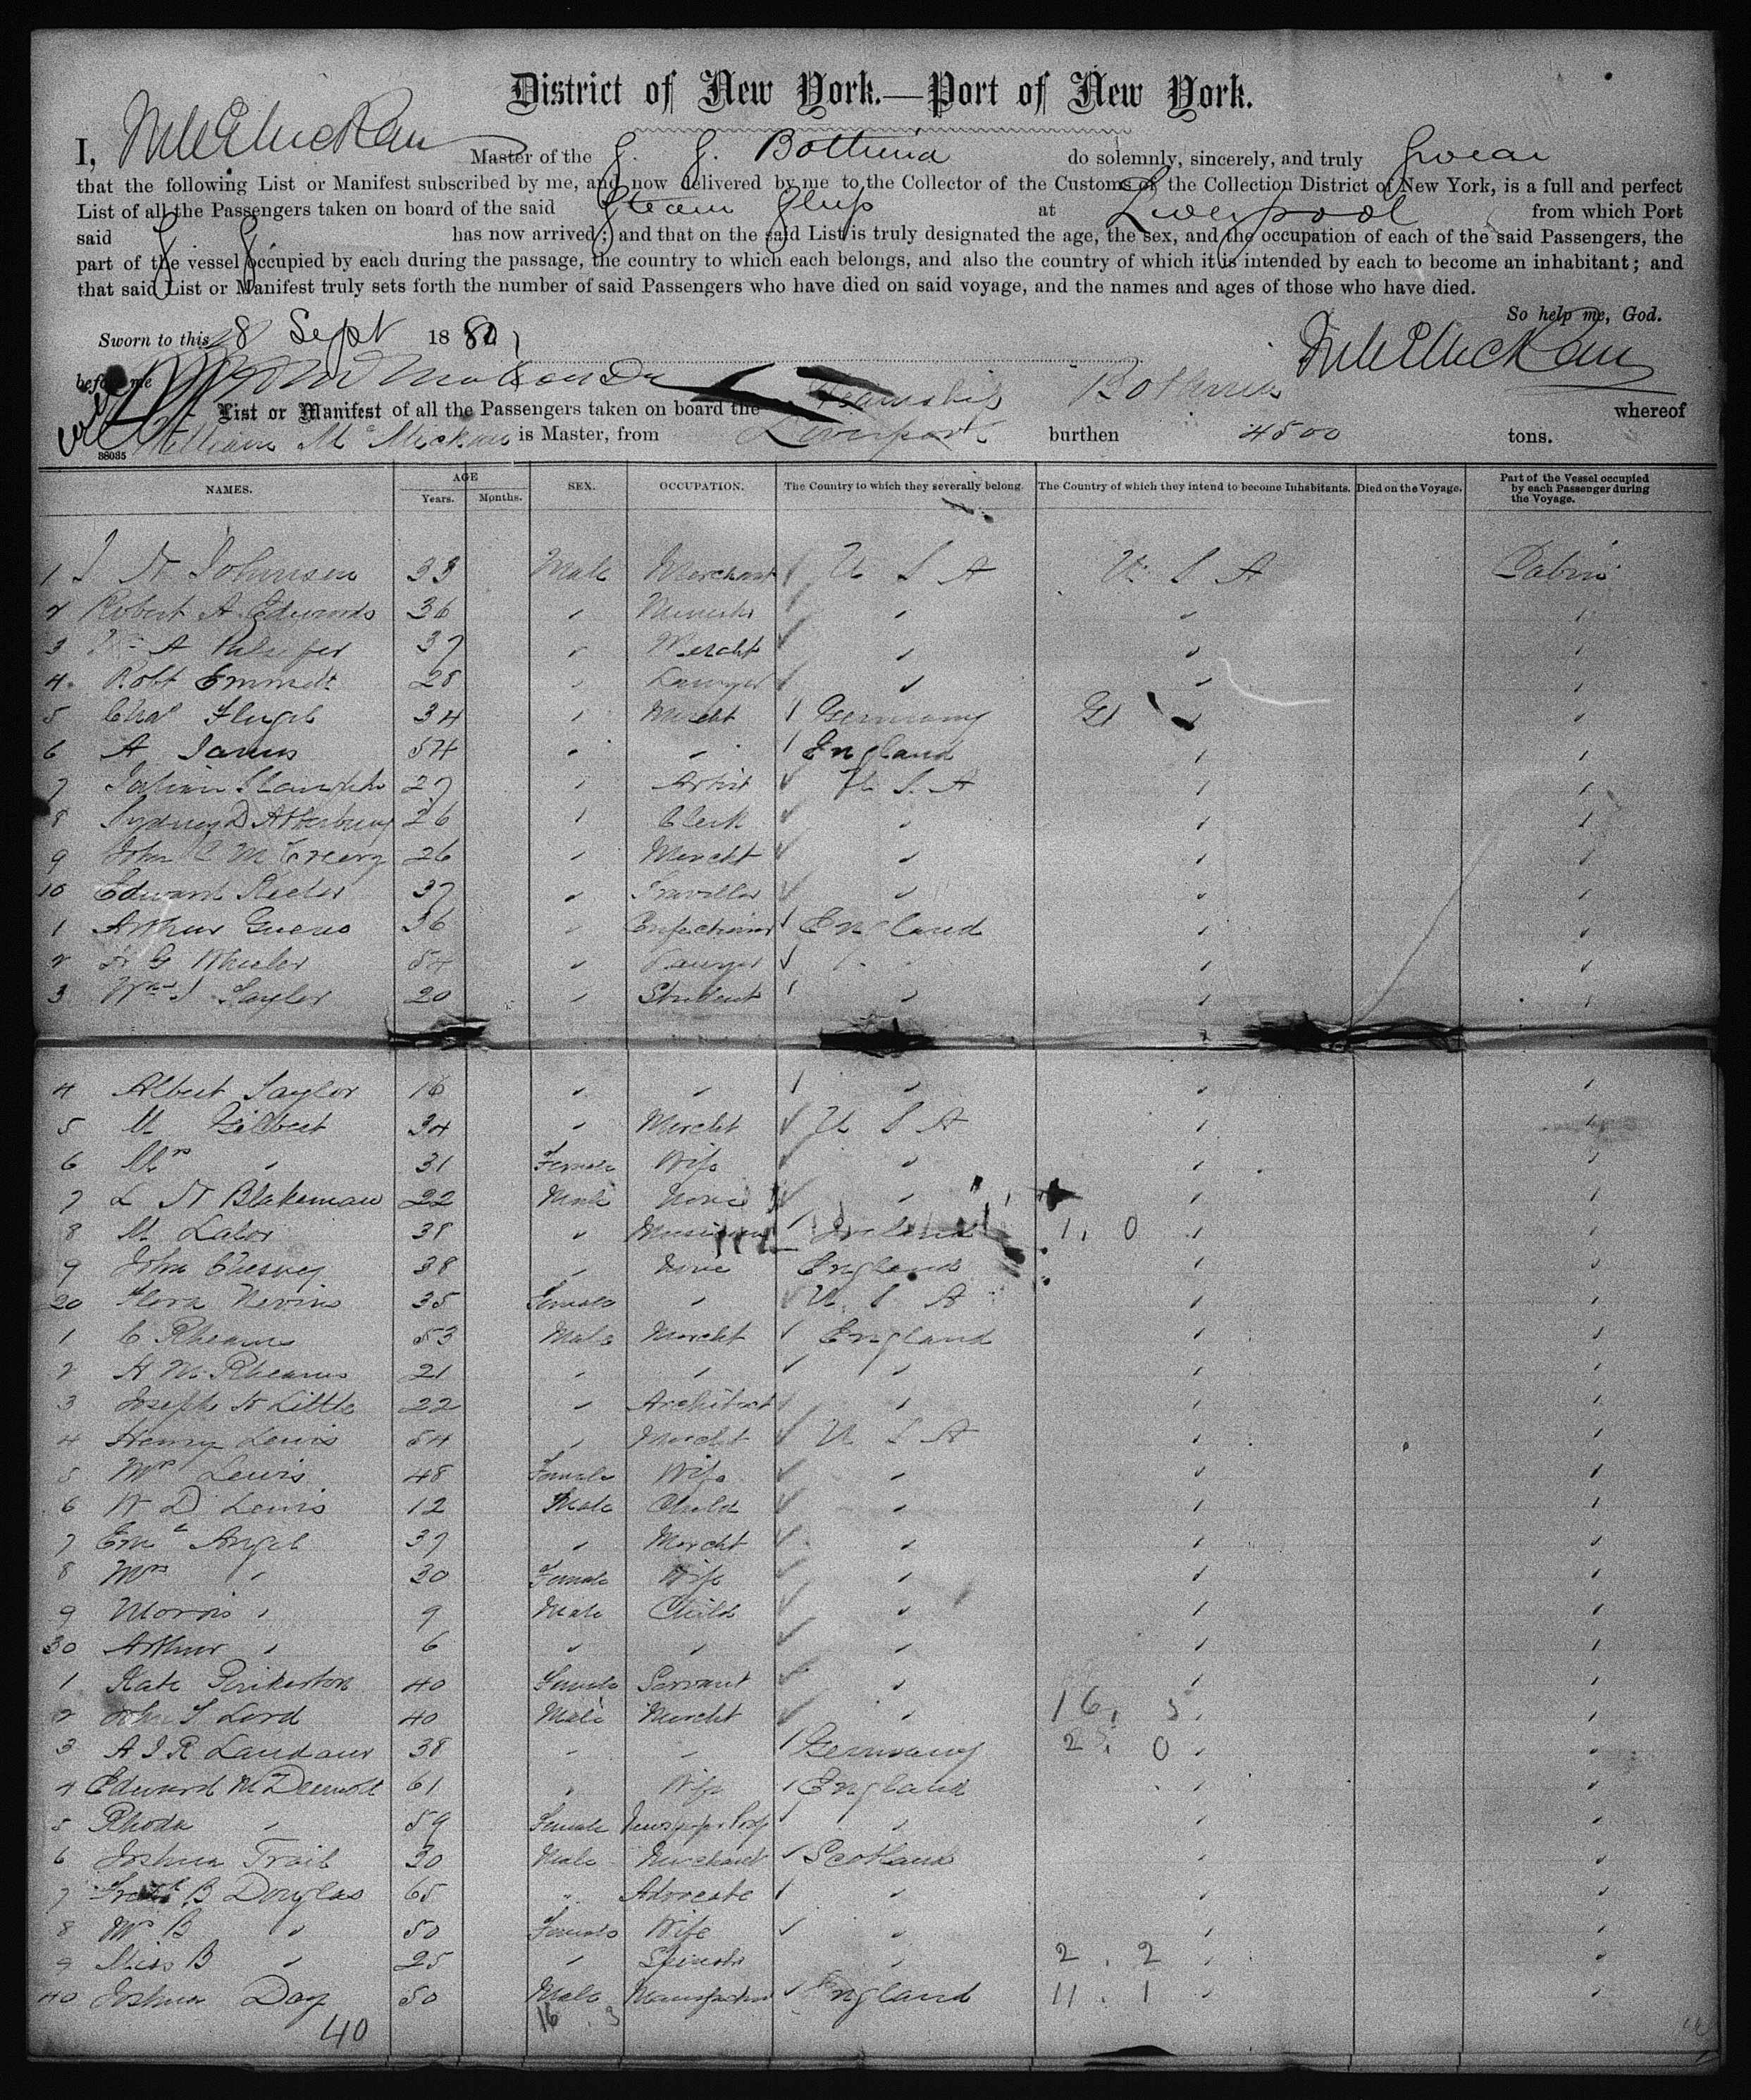 District of New York.—Port of New York.
I, Master of the S. S. Bothnia do solemnly, sincerely, and truly swear
that the following List or Manifest subscribed by me, and now delivered by me to the Collector of the Customs of the Collection District of New York, is a full and perfect
List of all the Passengers taken on board of the said Steam Ship at Liverpool from which Port
said S S has now arrived; and that on the said List is truly designated the age, the sex, and the occupation of each of the said Passengers, the
part of the vessel occupied by each during the passage, the country to which each belongs, and also the country of which it is intended by each to become an inhabitant; and
that said List or Manifest truly sets forth the number of said Passengers who have died on said voyage, and the names and ages of those who have died.
So help me, God.
Sworn to this 28 Sept 1880
before me
List or Manifest of all the Passengers taken on board the Steamship Bothnia whereof
William McMickan is Master, from Liverpool burthen 4500 tons.
38035
NAMES. AGE Years. Months. SEX. OCCUPATION. The Country to which they severally belong. The Country of which they intend to become Inhabitants. Died on the Voyage. Part of the Vessel occupied by each Passenger during the Voyage.
1 J H Johnson 33 Male Merchant U S A U S A Cabin
2 Robert A Edwards 36 "
3 Wm A Pulsifer 37 " Mercht " " "
4 Robt Emmett 28 " Lawyer " " "
5 Chas Flugel 34 " Mercht Germany "
6 A 54 " " England " "
7 Julian 27 " Artist U S A " "
8 Sydney D Atterbury 26 " Clerk " " "
9 John C McCreery 26 " Mercht " " "
10 Edward 37 " Traveller " " "
1 Arthur 36 " Confectioner England " "
2 H G Wheeler 54 " Lawyer " " "
3 Wm J Taylor 20 " Student " " "
4 Albert Taylor 16 " " " " "
5 M Gilbert 34 " Mercht U S A " "
6 Mrs " 31 Female Wife " " "
7 L H Blakeman 22 Male None " " "
8 M Lalor 38 " Musician Ireland 1, 0 " "
9 John Chesney 38 " None England " "
20 Flora Nevins 35 Female " U. S A " "
1 C Rheams 53 Male Mercht England " "
2 H M Rheams 21 " " " " "
3 Joseph H Little 22 " Architect " " "
4 Henry Lewis 54 " Mercht U S A " "
5 Mrs Lewis 48 Female Wife " " "
6 W D Lewis 12 Male Child " " "
7 Angel 37 " Mercht " " "
8 Mrs " 30 Female Wife " " "
9 Morris " 9 Male Child " " "
30 Arthur " 6 " " " " "
1 Kate Pinkerton 40 Female Servant " " "
2 John S Lord 40 Male Mercht " 16, 3 " "
3 A J R Landauer 38 " " Germany 23, 0 " "
4 Edward McDermott 61 " Wife England " "
5 Rhoda " 59 Female Newspaper Prop " " "
6 Joshua Trail 30 Male Merchant Scotland " "
7 Fredk B Douglas 65 " Advocate " " "
8 Mrs B " 50 Female Wife " " "
9 Miss B " 25 " Spinster " 2. 2 " "
40 Joshua Day 50 Male Manufacturer England 11. 1 " "
40 16. 3